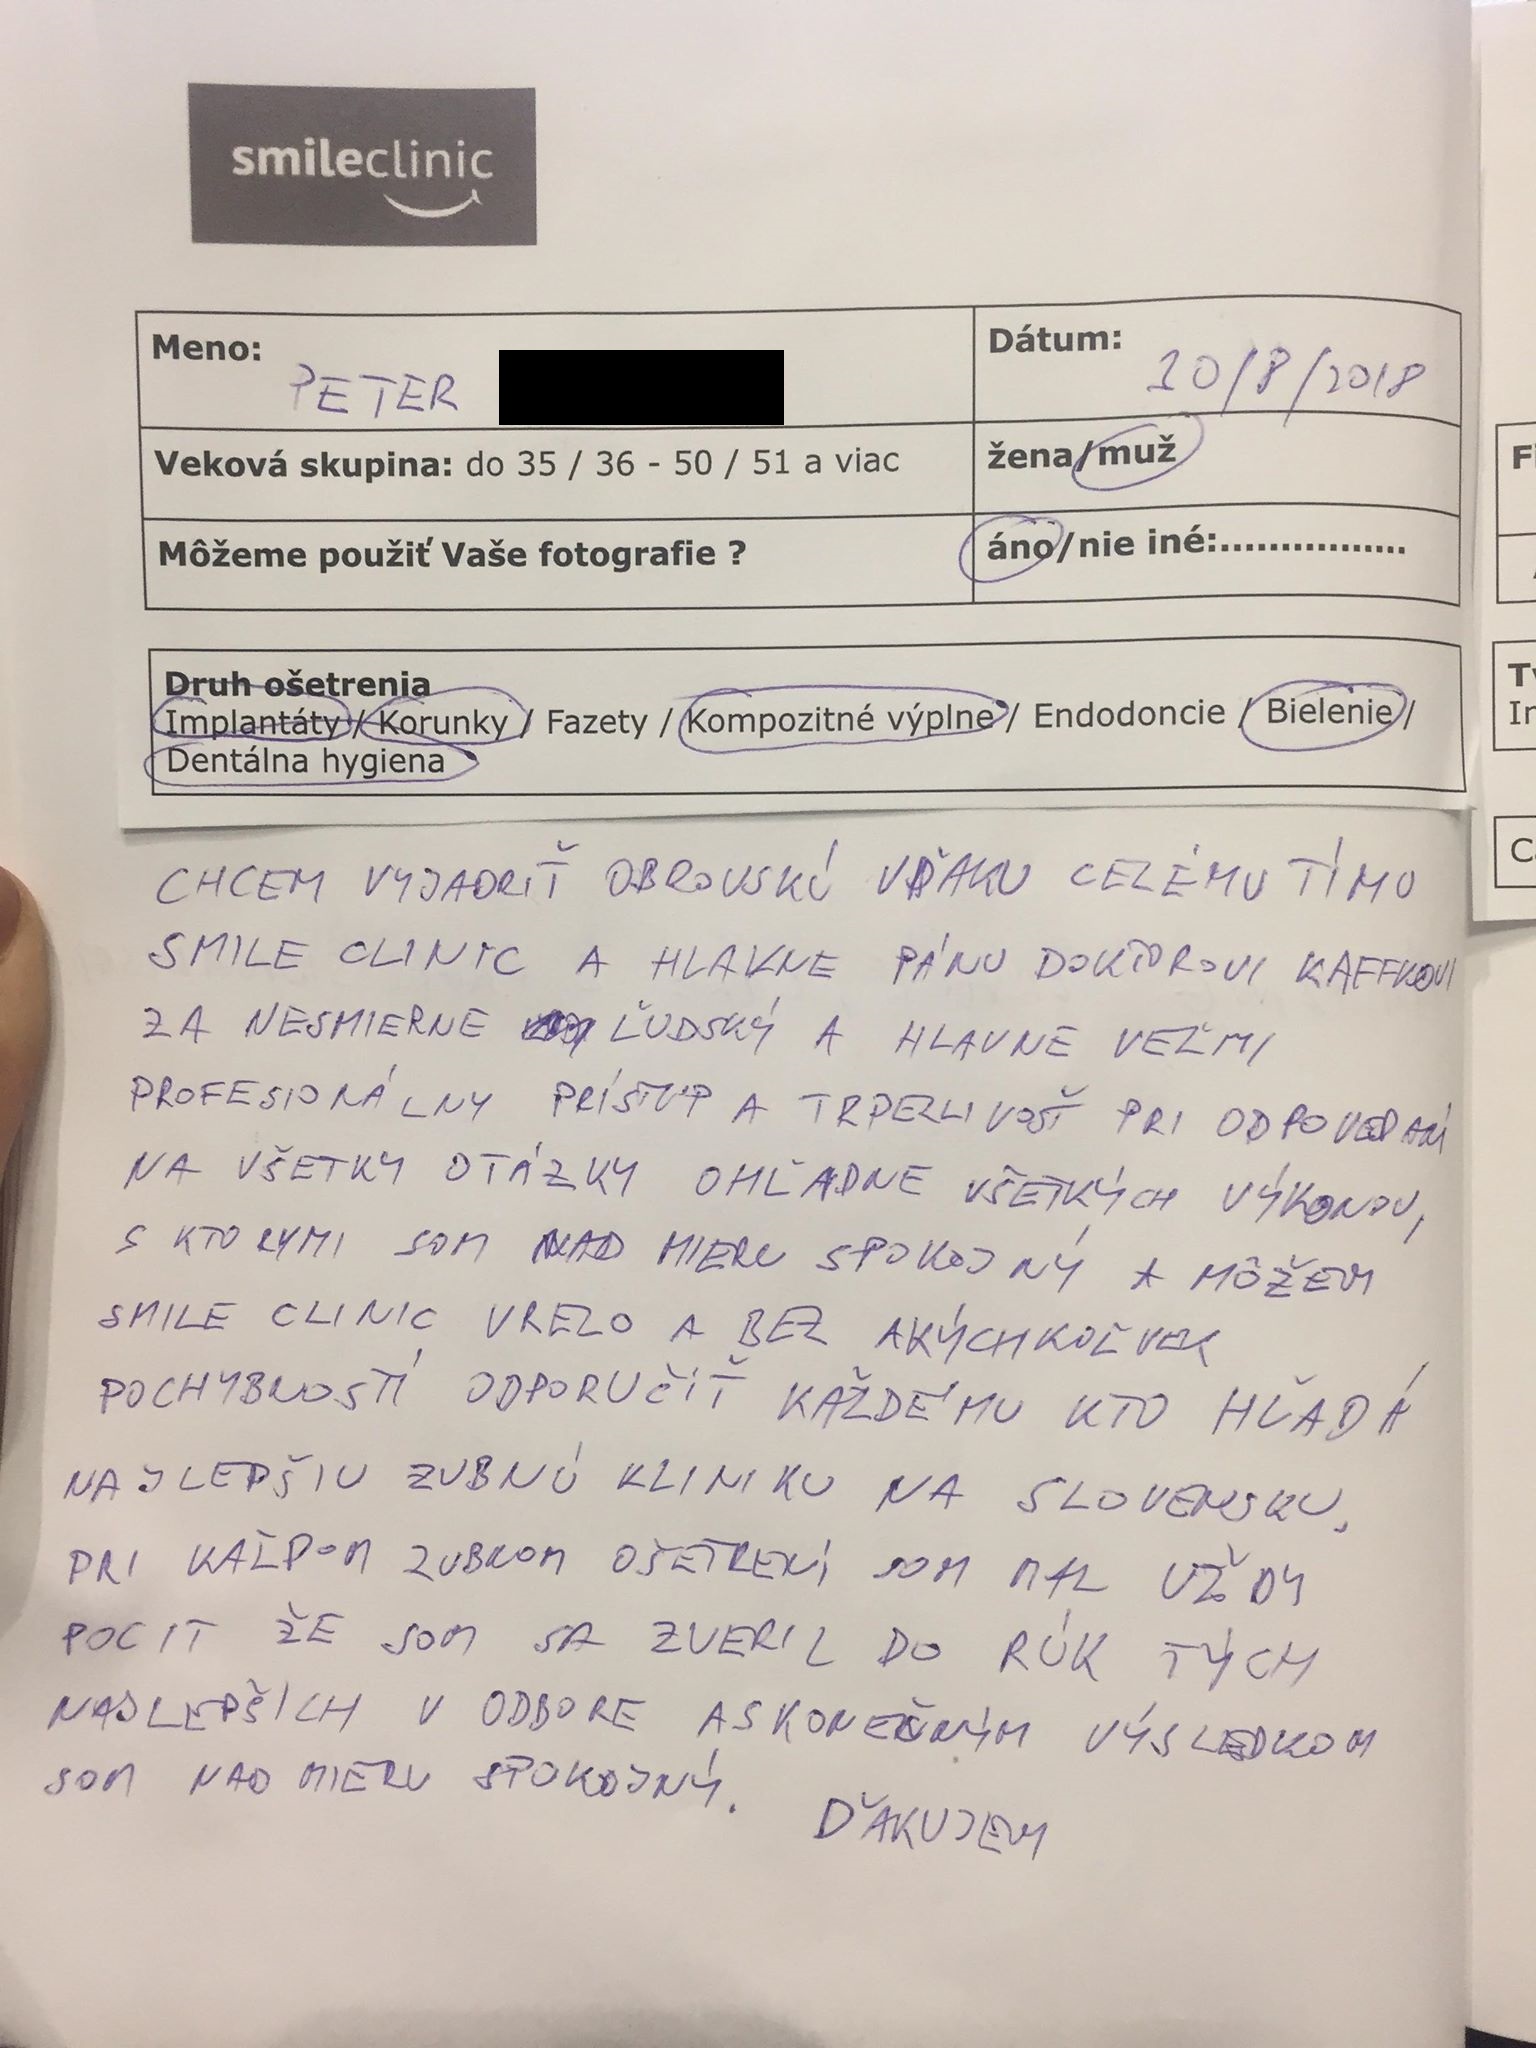 smileclinic
Meno: PETER
Dátum: 10/8/2018
Veková skupina: do 35 / 36 - 50 / 51 a viac
žena/muž
Môžeme použiť Vaše fotografie ?
áno/nie iné:................
Druh ošetrenia
Implantáty / Korunky / Fazety / Kompozitné výplne / Endodoncie / Bielenie /
Dentálna hygiena
CHCEM VYJADRIŤ OBROVSKÚ VĎAKU CELÉMU TÍMU
SMILE CLINIC A HLAVNE PÁNU DOKTOROVI KAFFKOVI
ZA NESMIERNE ĽUDSKÝ A HLAVNE VEĽMI
PROFESIONÁLNY PRÍSTUP A TRPEZLIVOSŤ PRI ODPOVEDANÍ
NA VŠETKY OTÁZKY OHĽADNE VŠETKÝCH VÝKONOV,
S KTORYMI SOM NAD MIERU SPOKOJNÝ A MÔŽEM
SMILE CLINIC VRELO A BEZ AKÝCHKOĽVEK
POCHYBNOSTÍ ODPORUČIŤ KAŽDÉMU KTO HĽADÁ
NAJLEPŠIU ZUBNÚ KLINIKU NA SLOVENSKU.
PRI KAŽDOM ZUBNOM OŠETRENÍ SOM MAL VŽDY
POCIT ŽE SOM SA ZVERIL DO RÚK TÝCH
NAJLEPŠÍCH V ODBORE A S KONEČNÝM VÝSLEDKOM
SOM NAD MIERU SPOKOJNÝ.
ĎAKUJEM